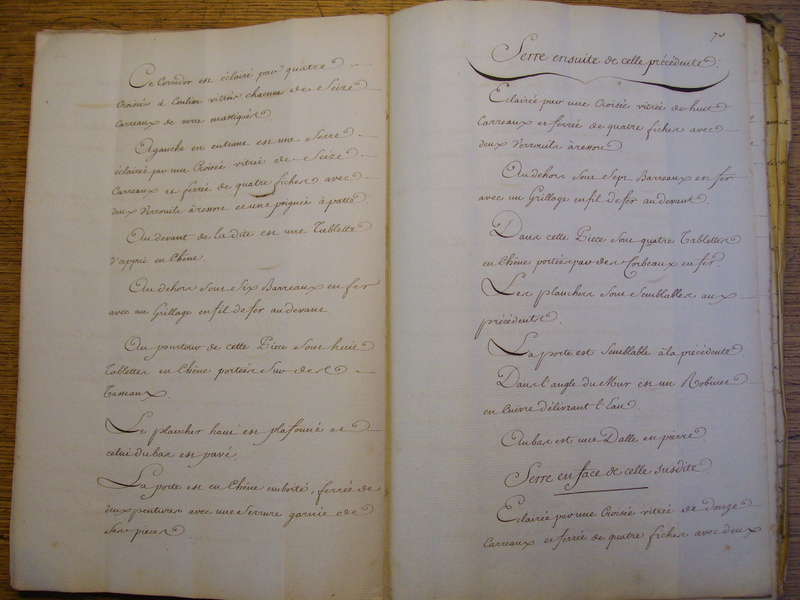 Ce Corridor est éclairé par quatre
Croisées à Coulisse vitrées chacune de Seize
Carreaux de verre mastiqués.
A gauche en entrant est une Serre
éclairée par une Croisée vitrée de Seize
Carreaux et ferrée de quatre fiches avec
deux Verrouils à ressort et une poignée à patte.
Au devant de la dite est une Tablette
d'appui en Chêne.
Au dehors Sont Six Barreaux en fer
avec un Grillage en fil de fer au devant.
Au pourtour de cette Piece Sont huit
Tablettes en Chêne portées Sur des
Tasseaux.
Le plancher haut est plafonné et
celui du bas est pavé.
La porte est en Chêne emboité, ferrée de
deux pentures avec une Serrure garnie de
Ses pieces.
70
Serre ensuite de celle précédente.
Eclairée par une Croisée vitrée de huit
Carreaux et ferrée de quatre fiches avec
deux Verrouils à ressort.
Au dehors Sont Sept Barreaux en fer
avec un Grillage en fil de fer au devant.
Dans cette Piece Sont quatre Tablettes
en Chêne portées par des Corbeaux en fer.
Les planchers Sont Semblables aux
précédents.
La porte est Semblable à la précédente.
Dans l'angle du Mur est un Robinet
en Cuivre délivrant l'Eau.
Au bas est une Dalle en pierre.
Serre en face de celle susdite
Eclairée par une Croisée vitrée de douze
Carreaux et ferrée de quatre fiches avec deux